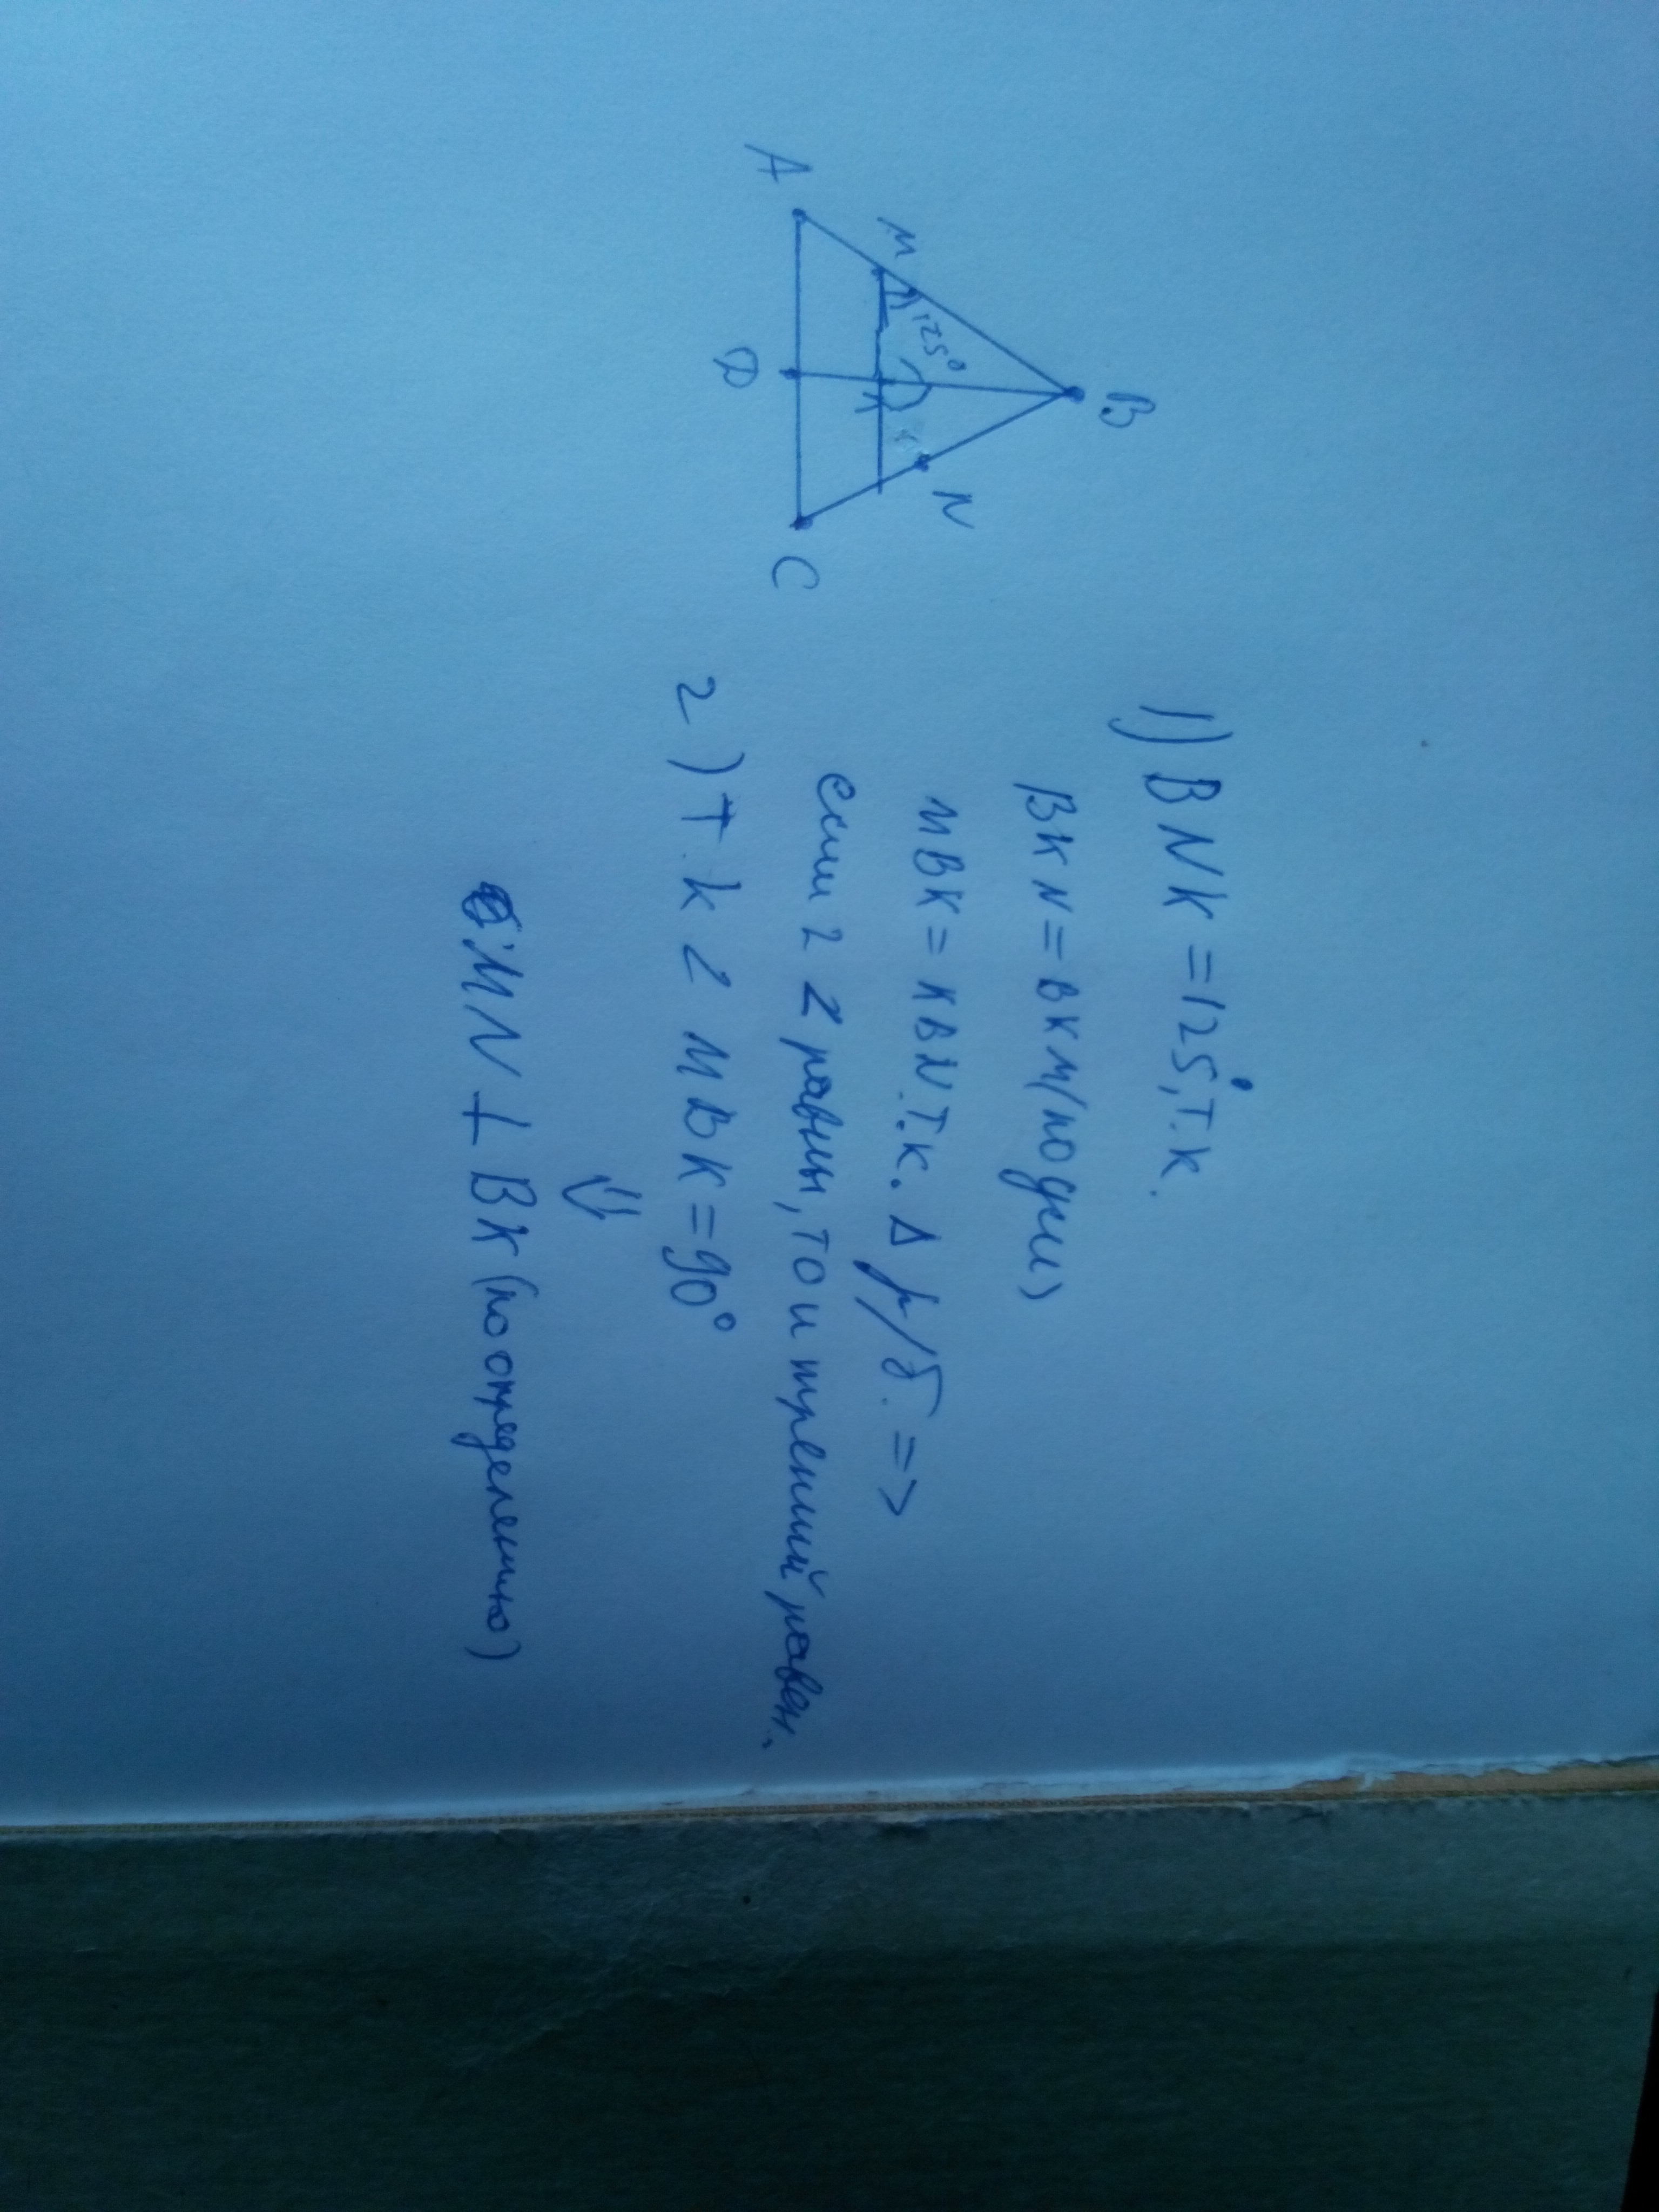 B
M
125°
N
K
A
D
C
1) BNK = 125°, т.к.
BKN = BKM (по усл)
MBK = KBN. т.к. Δ р/б. =>
если 2 ∠ равны, то и третий равен.
2) Т.к ∠ MBK = 90°
⇓
MN ⊥ BK (по определению)